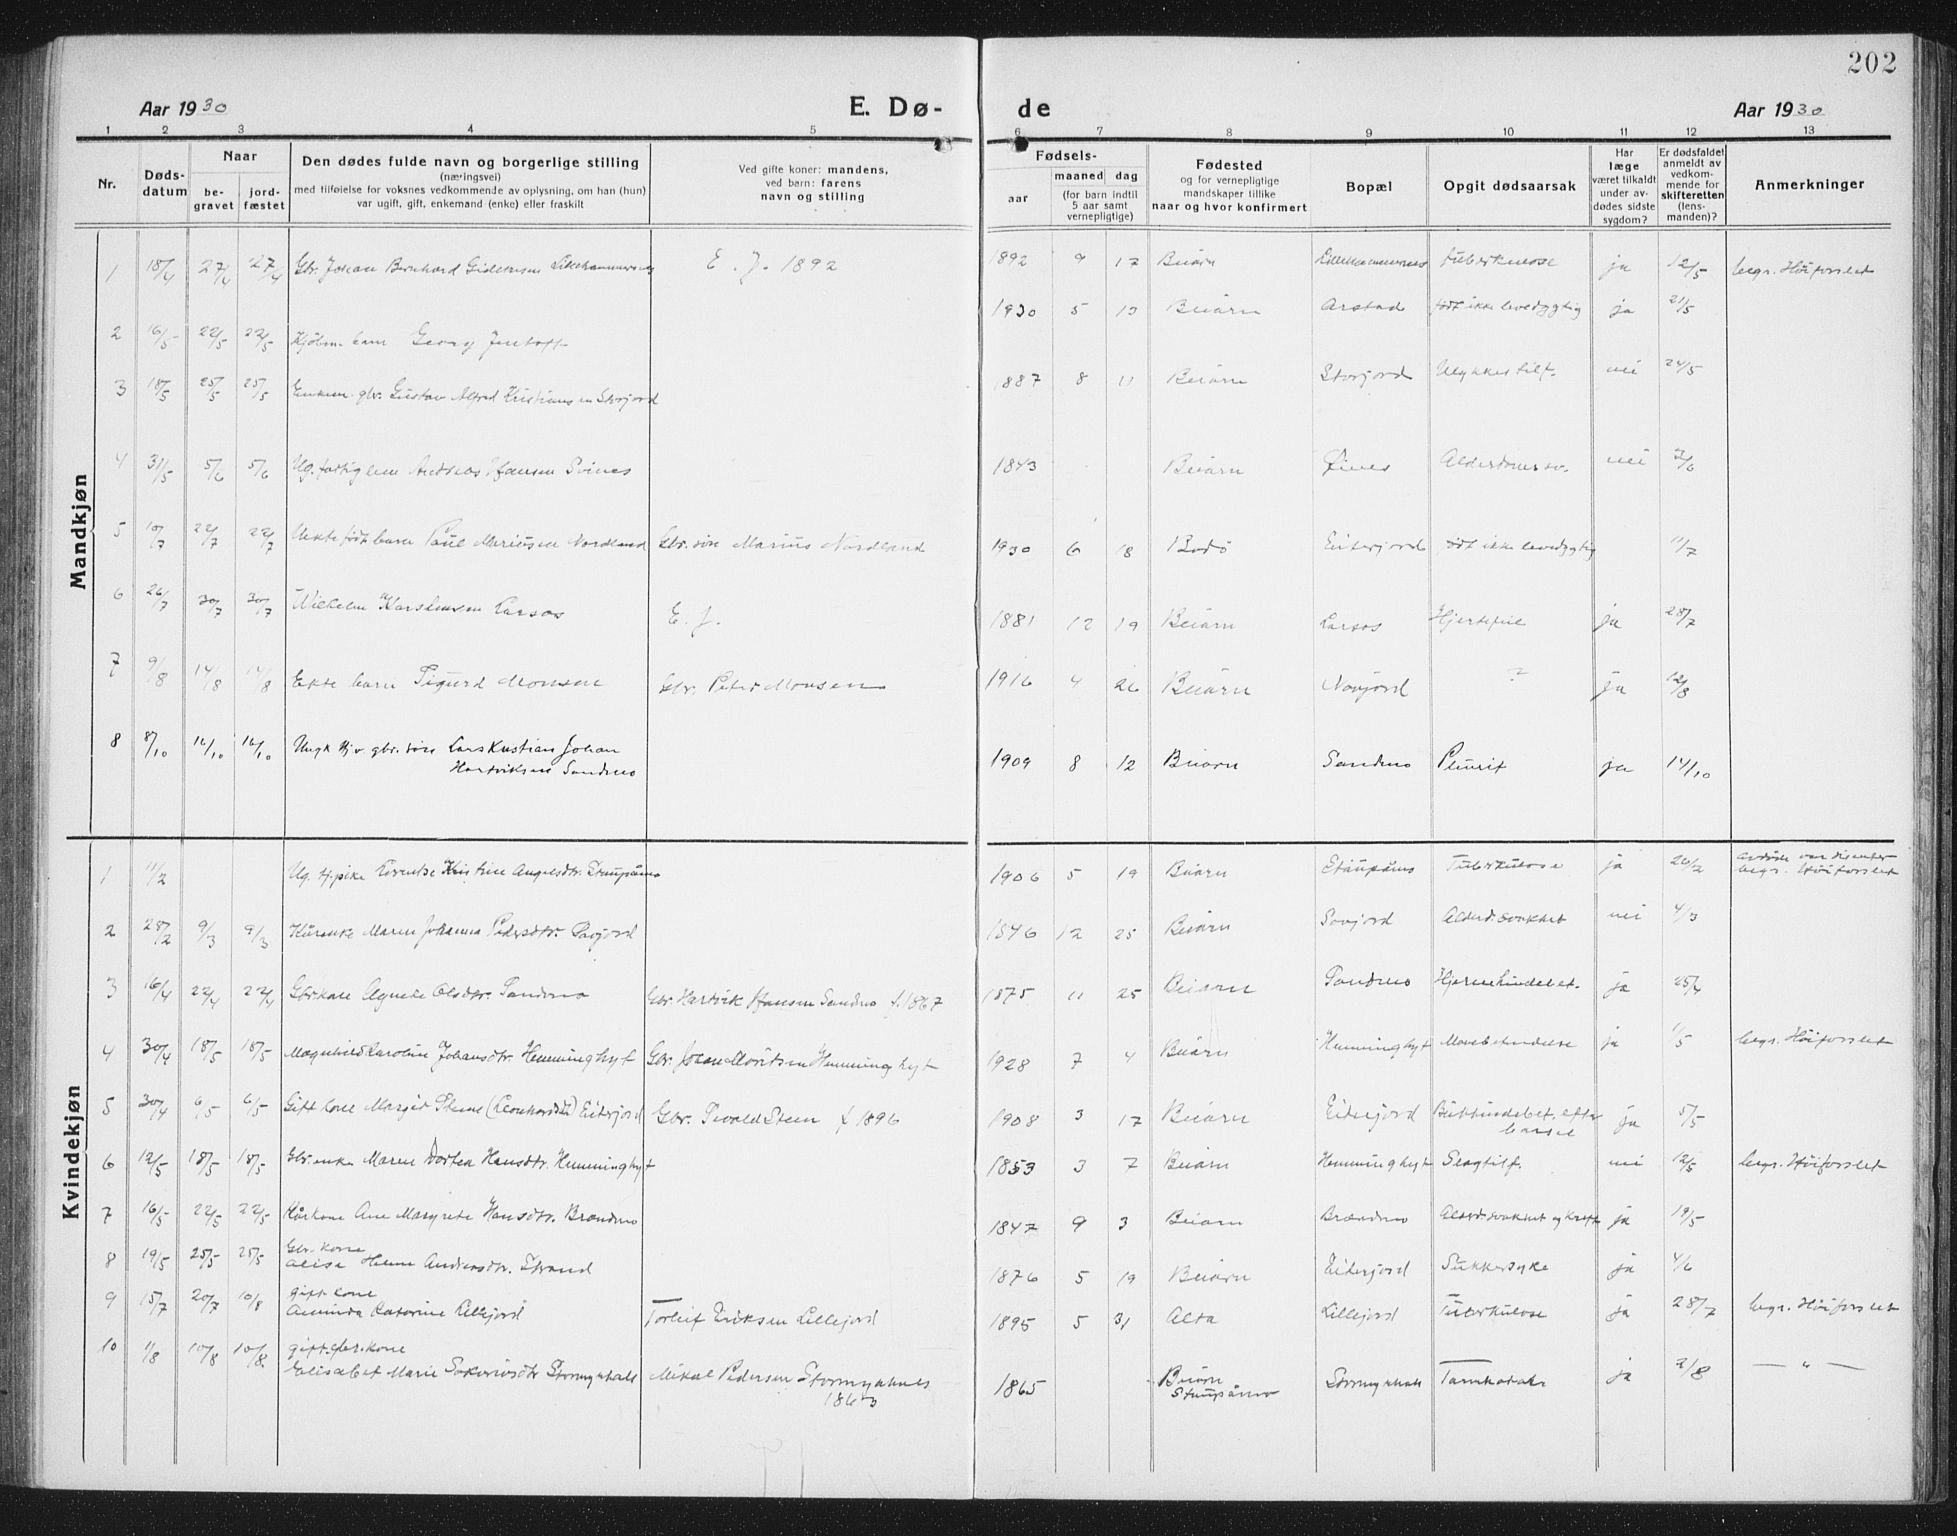 202
Aar 1930 E. Dø- de Aar 1930
1 2 3 4 5 6 7 8 9 10 11 12 13
Nr.
Døds-
datum
Naar
be-
gravet
jord-
fæstet
Den dødes fulde navn og borgerlige stilling
(næringsvei)
med tilføielse for voksnes vedkommende av oplysning, om han (hun)
var ugift, gift, enkemand (enke) eller fraskilt
Ved gifte koner: mandens,
ved barn: farens
navn og stilling
Fødsels-
aar
maaned dag
(for barn indtil
5 aar samt
vernepligtige)
Fødested
og for vernepligtige
mandskaper tillike
naar og hvor konfirmert
Bopæl
Opgit dødsaarsak
Har
læge
været tilkaldt
under av-
dødes sidste
sygdom?
Er dødsfaldet
anmeldt av
vedkom-
mende for
skifteretten
(lens-
manden)?
Anmerkninger
Mandkjøn
1 18/4 27/4 27/4 Gbr. Johan Bernhard E. J. 1892 1892 9 17 Beiarn tuberkulose ja 12/5 begr. Høiforslet
2 16/5 22/5 22/5 barn Georg Jentoft 1930 5 13 Beiarn Arstad født ikke levedygtig ja 21/5
3 18/5 25/5 25/5 Enkem. gbr. Gustav Alfred Kristiansen Storjord 1887 8 11 Beiarn Storjord Ulykkestilf. nei 24/5
4 31/5 5/6 5/6 Ug. fattiglem Andreas Hansen 1843 Beiarn nei 3/6
5 10/7 22/7 22/7 Uekte født barn Paul Meriusen Nordland Gbr. søn Marius Nordland 1930 6 18 Bodø Eiterjord født ikke levedygtig 11/7
6 26/7 30/7 30/7 Wilhelm Karstensen Larsos E. J. 1881 12 19 Beiarn Larsos Hjertefeil ja 28/7
7 9/8 14/8 14/8 Ekte barn Sigurd Monsen Gbr. Peter Monsen 1916 4 26 Beiarn Novjord ? ja 12/8
8 8/10 16/10 16/10 Ungk. gbr. søn Lars Kristian Johan
Hartviksen Sandmo 1909 8 12 Beiarn Sandmo Pleurit ja 14/10
Kvindekjøn
1 11/2 Ug. tj.pike Lorentse Kristine Angelsdtr. Strupåmo 1906 5 19 Beiarn Tuberkulose ja 26/2 avdøde var disenter
begr. Høiforslet
2 28/2 9/3 9/3 Kårenke Maren Johanna Pedersdtr. Savjord 1846 12 25 Beiarn Savjord Alderd.svakhet nei 4/3
3 16/4 22/4 22/4 Gbr.kone Agnete Olsdtr. Sandmo Gbr. Hartvik Hansen Sandmo f. 1867 1875 11 25 Beiarn Sandmo Hjernehindebet. ja 25/4
4 30/4 18/5 18/5 Magnhild Karoline Johansdtr. Hemminghyt Gbr. Johan Moritsen Hemminghyt 1928 7 4 Beiarn Hemminghyt Mavebetendelse ja 1/5 begr. Høiforslet
5 30/4 6/5 6/5 Gift kone Margit Steene (Leonhardsd.) Eiterjord Gbr. Sevald Steen f 1896 1908 3 17 Beiarn Eiterjord Bukhindebet. efter
barsel ja 5/5
6 12/5 18/5 18/5 Gbr.enke Maren Dortea Hansdtr. Hemminghyt 1853 3 7 Beiarn Hemminghyt Slagtilf. nei 12/5 begr. Høiforslet
7 16/5 22/5 22/5 Kårkone Ane Margrete Hansdtr. Brændmo 1847 9 3 Beiarn Brændmo Alderd.svakhet og kreft ja 19/5
8 19/5 25/5 25/5 Gbr. kone
Andersdtr. Strand 1876 5 19 Beiarn Eiterjord Sukkersyke ja 4/6
9 15/7 20/7 10/8 gift kone
Aminda Catarine Lillejord Torleif Eriksen Lillejord 1895 5 31 Alta Lillejord Tuberkulose ja 28/7 begr. Høiforslet
10 1/8 10/8 10/8 gift gbr.kone
Elisabet Marie Sakariasdtr Stormyrhals Mikal Pedersen Stormyrhals
1863 1865 Beiarn
Strupåmo Stormyrhals ja 2/8 — " —